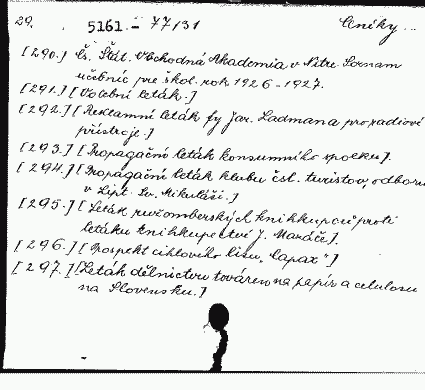 29. 5161.- 77/31 Cníky...
[290.] Čs. Štát. Obchodná Akademia v Nitre. Soznam
učebníc pre škol. rok 1926-1927.
[291.] [Volební leták.]
[292.] [Reklamní leták fy Jar. Ladmana pro radiové
přístroje.]
[293.] [Propagační leták konsumního spolku].
[294.] [Propagační leták klubu čsl. turistov, odboru
v Lipt. Sv. Mikuláši.]
[295.] [Leták ružomberských knihkupcu proti
letáku knihkupectví J. Maráče].
[296.] [Prospekt cihlového lisu, "Capax"]
[297.] [Leták dělnictvu továren na papír a celulosu
na Slovensku.]